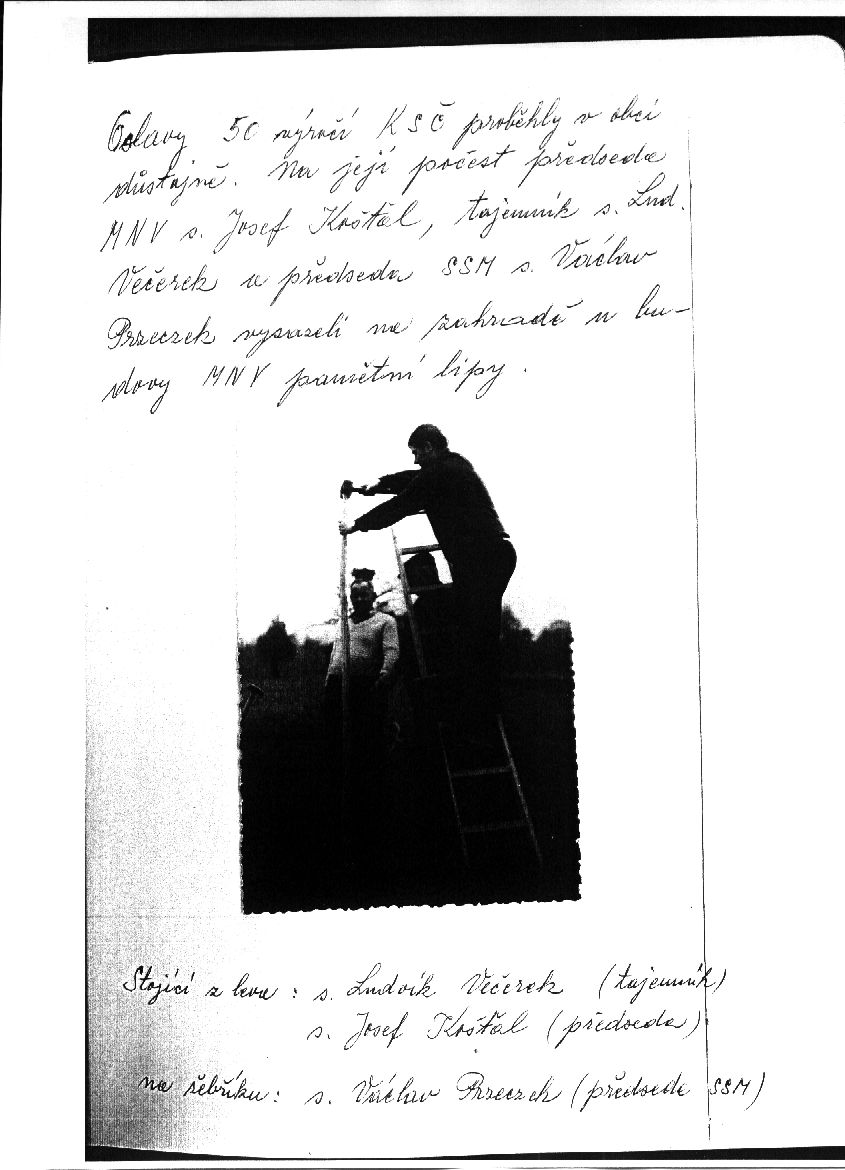 Oslavy 50 výročí KSČ proběhly v obci
důstojně. Na její počest předseda
MNV s. Josef Košťál, tajemník s. Lud.
Večerek a předseda SSM s. Václav
Przeczek vysazeli na zahradě u bu-
dovy MNV pamětní lípy.
Stojící z leva: s. Ludvík Večerek (tajemník)
s. Josef Košťál (předseda)
na žebříku: s. Václav Przeczek (předseda SSM)